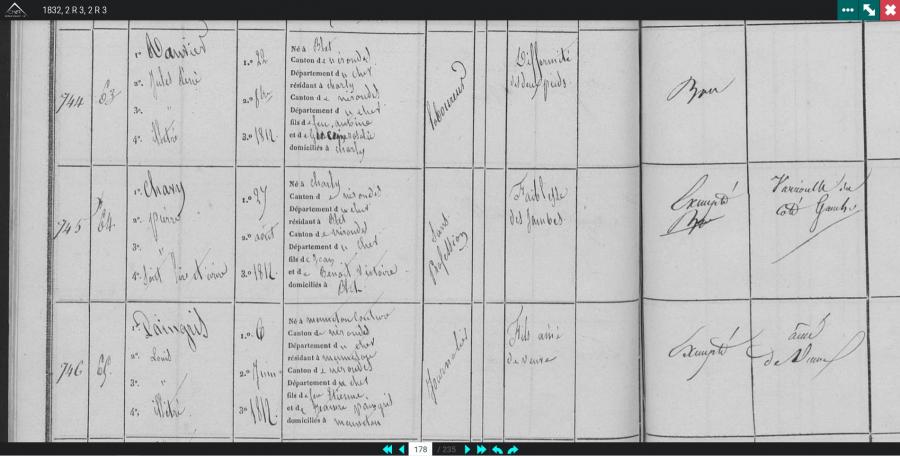 1832, 2 R 3, 2 R 3
744
63
1º
2º Jules René
3º "
4º illettré
1.º 22
2.º
3.º 1811
Né à Blet
Canton de nérondes
Département du cher
résidant à charly
Canton de nérondes
Département du cher
fils de feu antoine
et de
domiciliés à charly
laboureur
Difformité
des deux pieds
Bon
745
64
1º Chavy
2º pierre
3º "
4º Sait lire et écrire
1.º 27
2.º août
3.º 1811
Né à charly
Canton de nérondes
Département du cher
résidant à Blet
Canton de nérondes
Département du cher
fils de Jean
et de Benoit Victoire
domiciliés à Blet
Sans
Profession
Faiblesse
des Jambes
Exempté
du
côté Gauche
746
65
2º Louis
3º "
4º illettré
1.º 6
2.º Juin
3º 1811
Né à
Canton de nérondes
Département du cher
résidant à
Canton de nérondes
Département du cher
fils de feu Etienne
et de Jeanne
domiciliés à
Journalier
Fils ainé
de veuve
Exempté
ainé
de Veuve
178 / 235